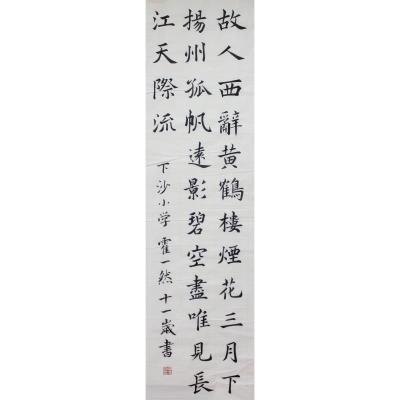 故人西辭黄鶴樓煙花三月下
揚州孤帆遠影碧空盡唯見長
江天際流
下沙小学 霍一然 十一歲書